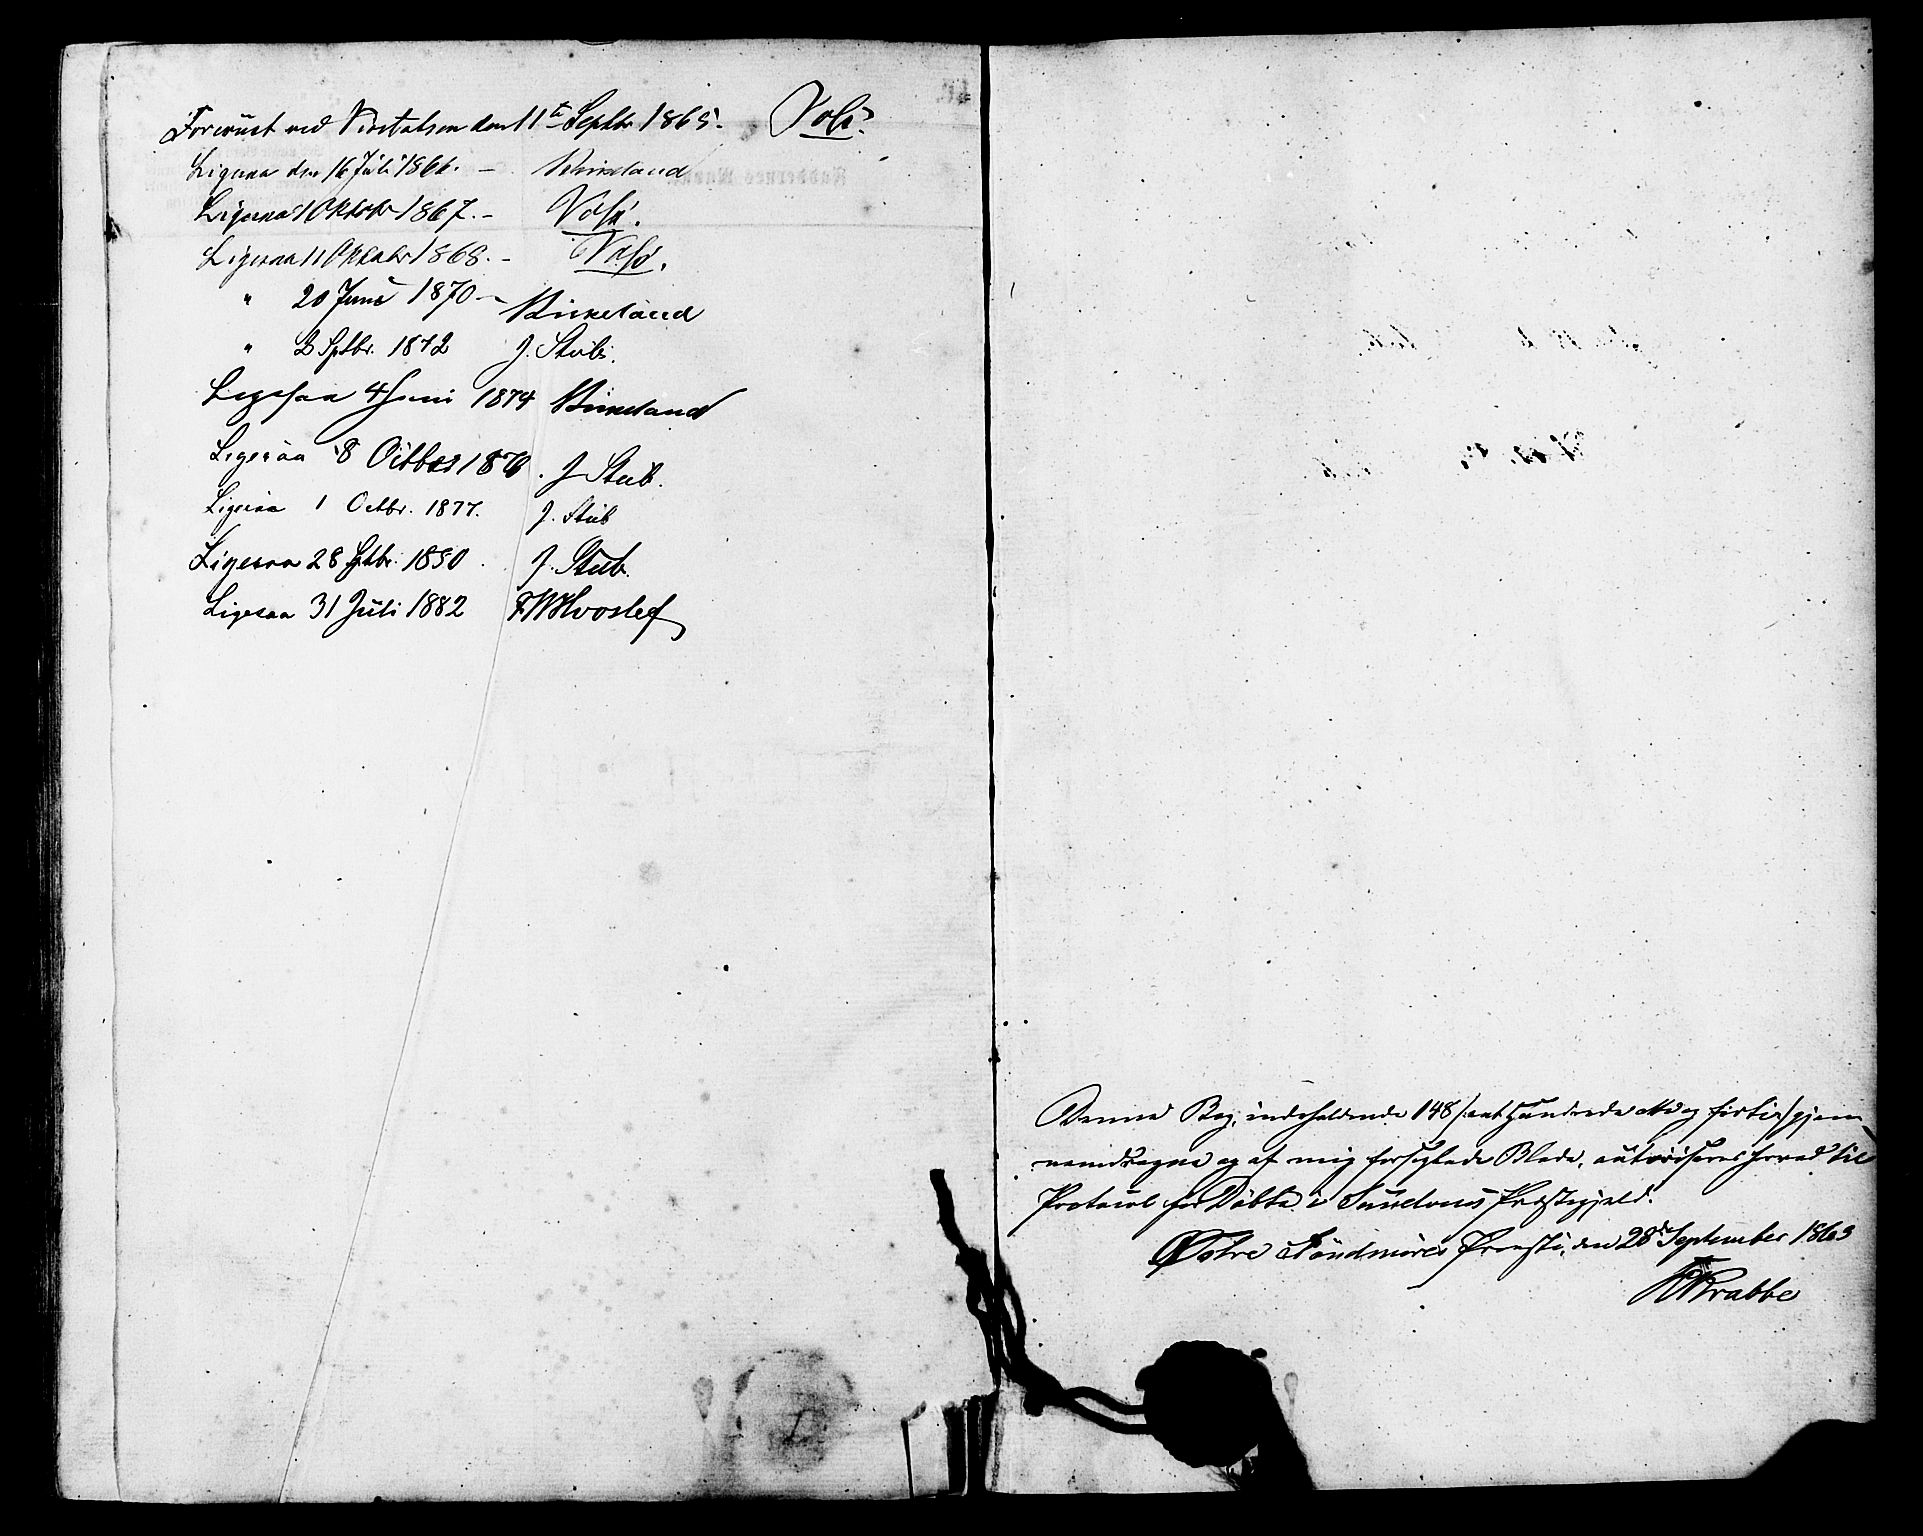 Foreviist ved Visitatsen den 11te Septbr 1865.
Ligesaa den 16 Juli 1866. – Birkeland
Ligesaa 1 Oktobr 1867. –
Ligesaa 11 Oktobr 1868. –
" 20 Juni 1870 – Birkeland
" 3 Sptbr. 1872 J. Stub.
Ligesaa 4 Juni 1874 Birkeland
Ligesaa 8 Octbr 1876. J Stub.
Ligesaa 1 Octbr. 1877. J. Stub
Ligesaa 28 Sptbr. 1880. J. Stub.
Ligesaa 31 Juli 1882 F W Hvoslef
Denne Bog, indeholdende 148 /: eet Hundrede otte og firti :/ gjen-
nemdragne og af mig forseglede Blade, autoriseres herved til
Protocol for Döbte i Sunelvens Præstegjeld.
Østre Söndmöres Provsti, den 28de September 1863
Krabbe